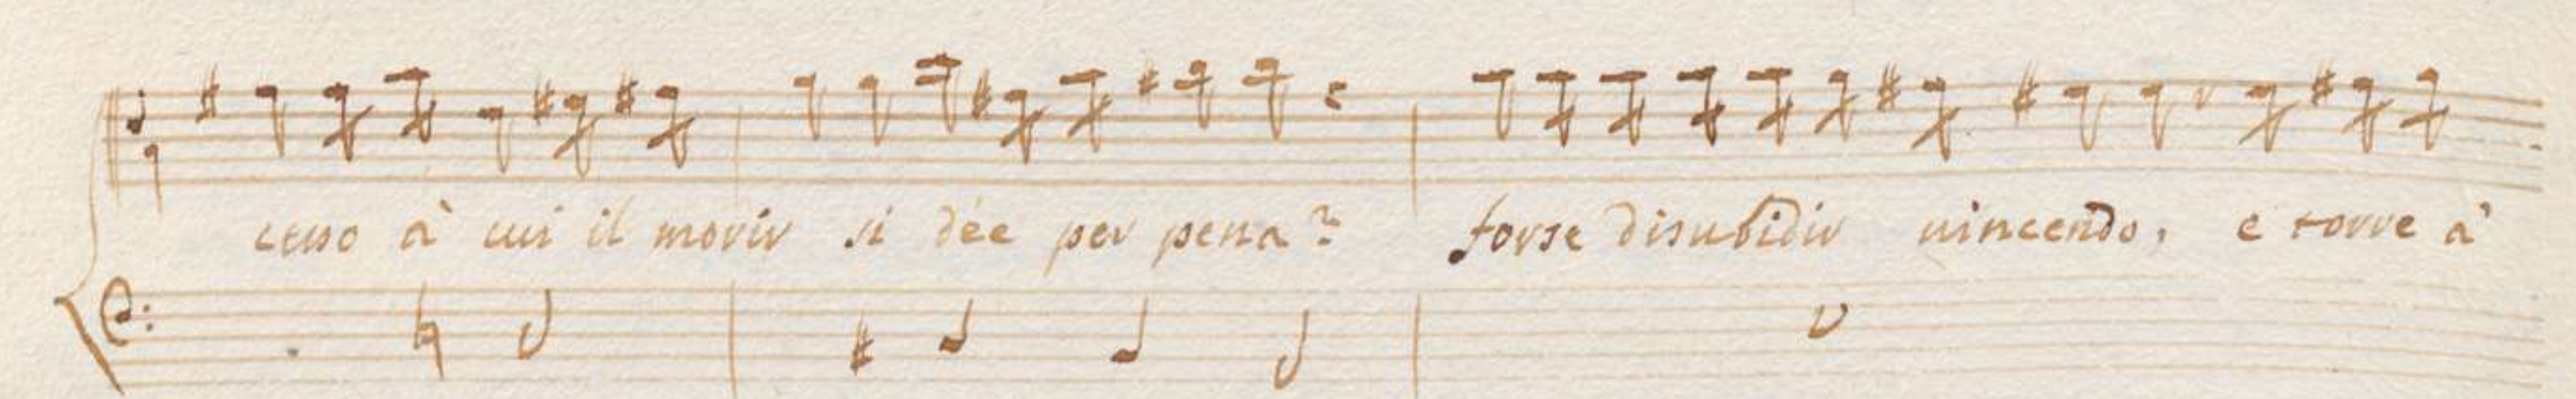 cesso à cui il morir si dée per pena? forse disubidir uincendo, e torre à